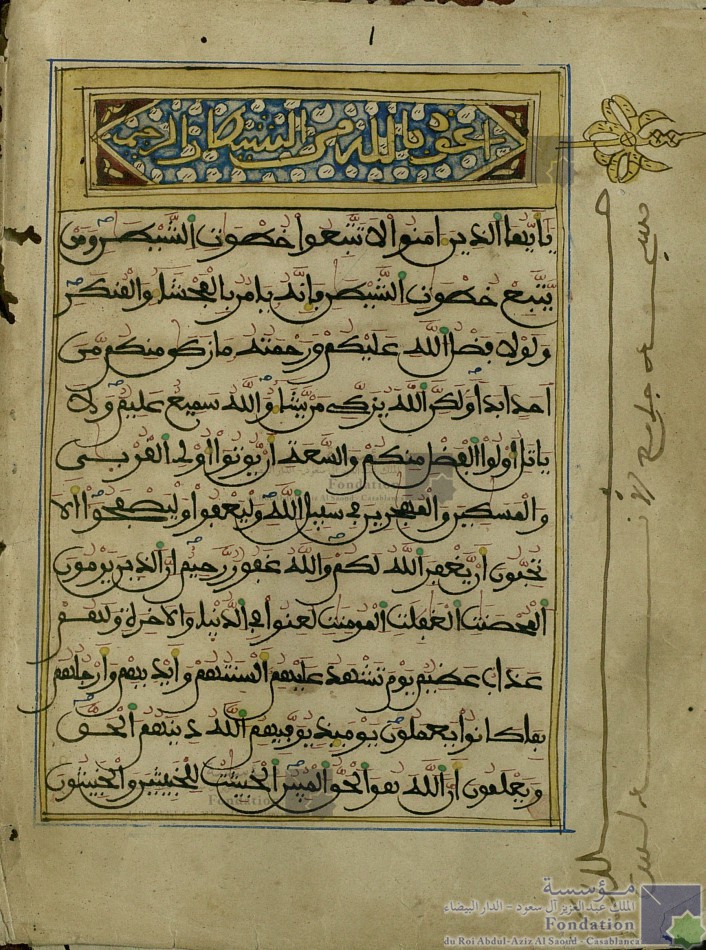 1
اعوذ بالله من الشيطان الرجيم
يأيها الذين امنوا لا تتبعوا خطوت الشيطن ومن
يتبع خطوت الشيطن فإنه يامر بالفحشا والمنكر
ولولا فضل الله عليكم ورحمته ما زكى منكم من
احد ابدا ولكن الله يزكي من يشا والله سميع عليم ولا
ياتل اولوا الفضل منكم والسعة ان يوتوا اولي القربى
والمسكين والمهجرين في سبيل الله وليعفوا وليصفحوا الا
تحبون ان يغفر الله لكم والله غفور رحيم ان الذين يرمون
المحصنت الغفلت المومنت لعنوا في الدنيا والاخرة ولهم
عذاب عظيم يوم تشهد عليهم السنتهم وايديهم وارجلهم
بما كانوا يعملون يوميذ يوفيهم الله دينهم الحق
ويعلمون ان الله هو الحق المبين الخبيثت للخبيثين والخبيثون
مؤسسة
الملك عبد العزيز آل سعود - الدار البيضاء
Fondation
du Roi Abdul-Aziz Al Saoud - Casablanca